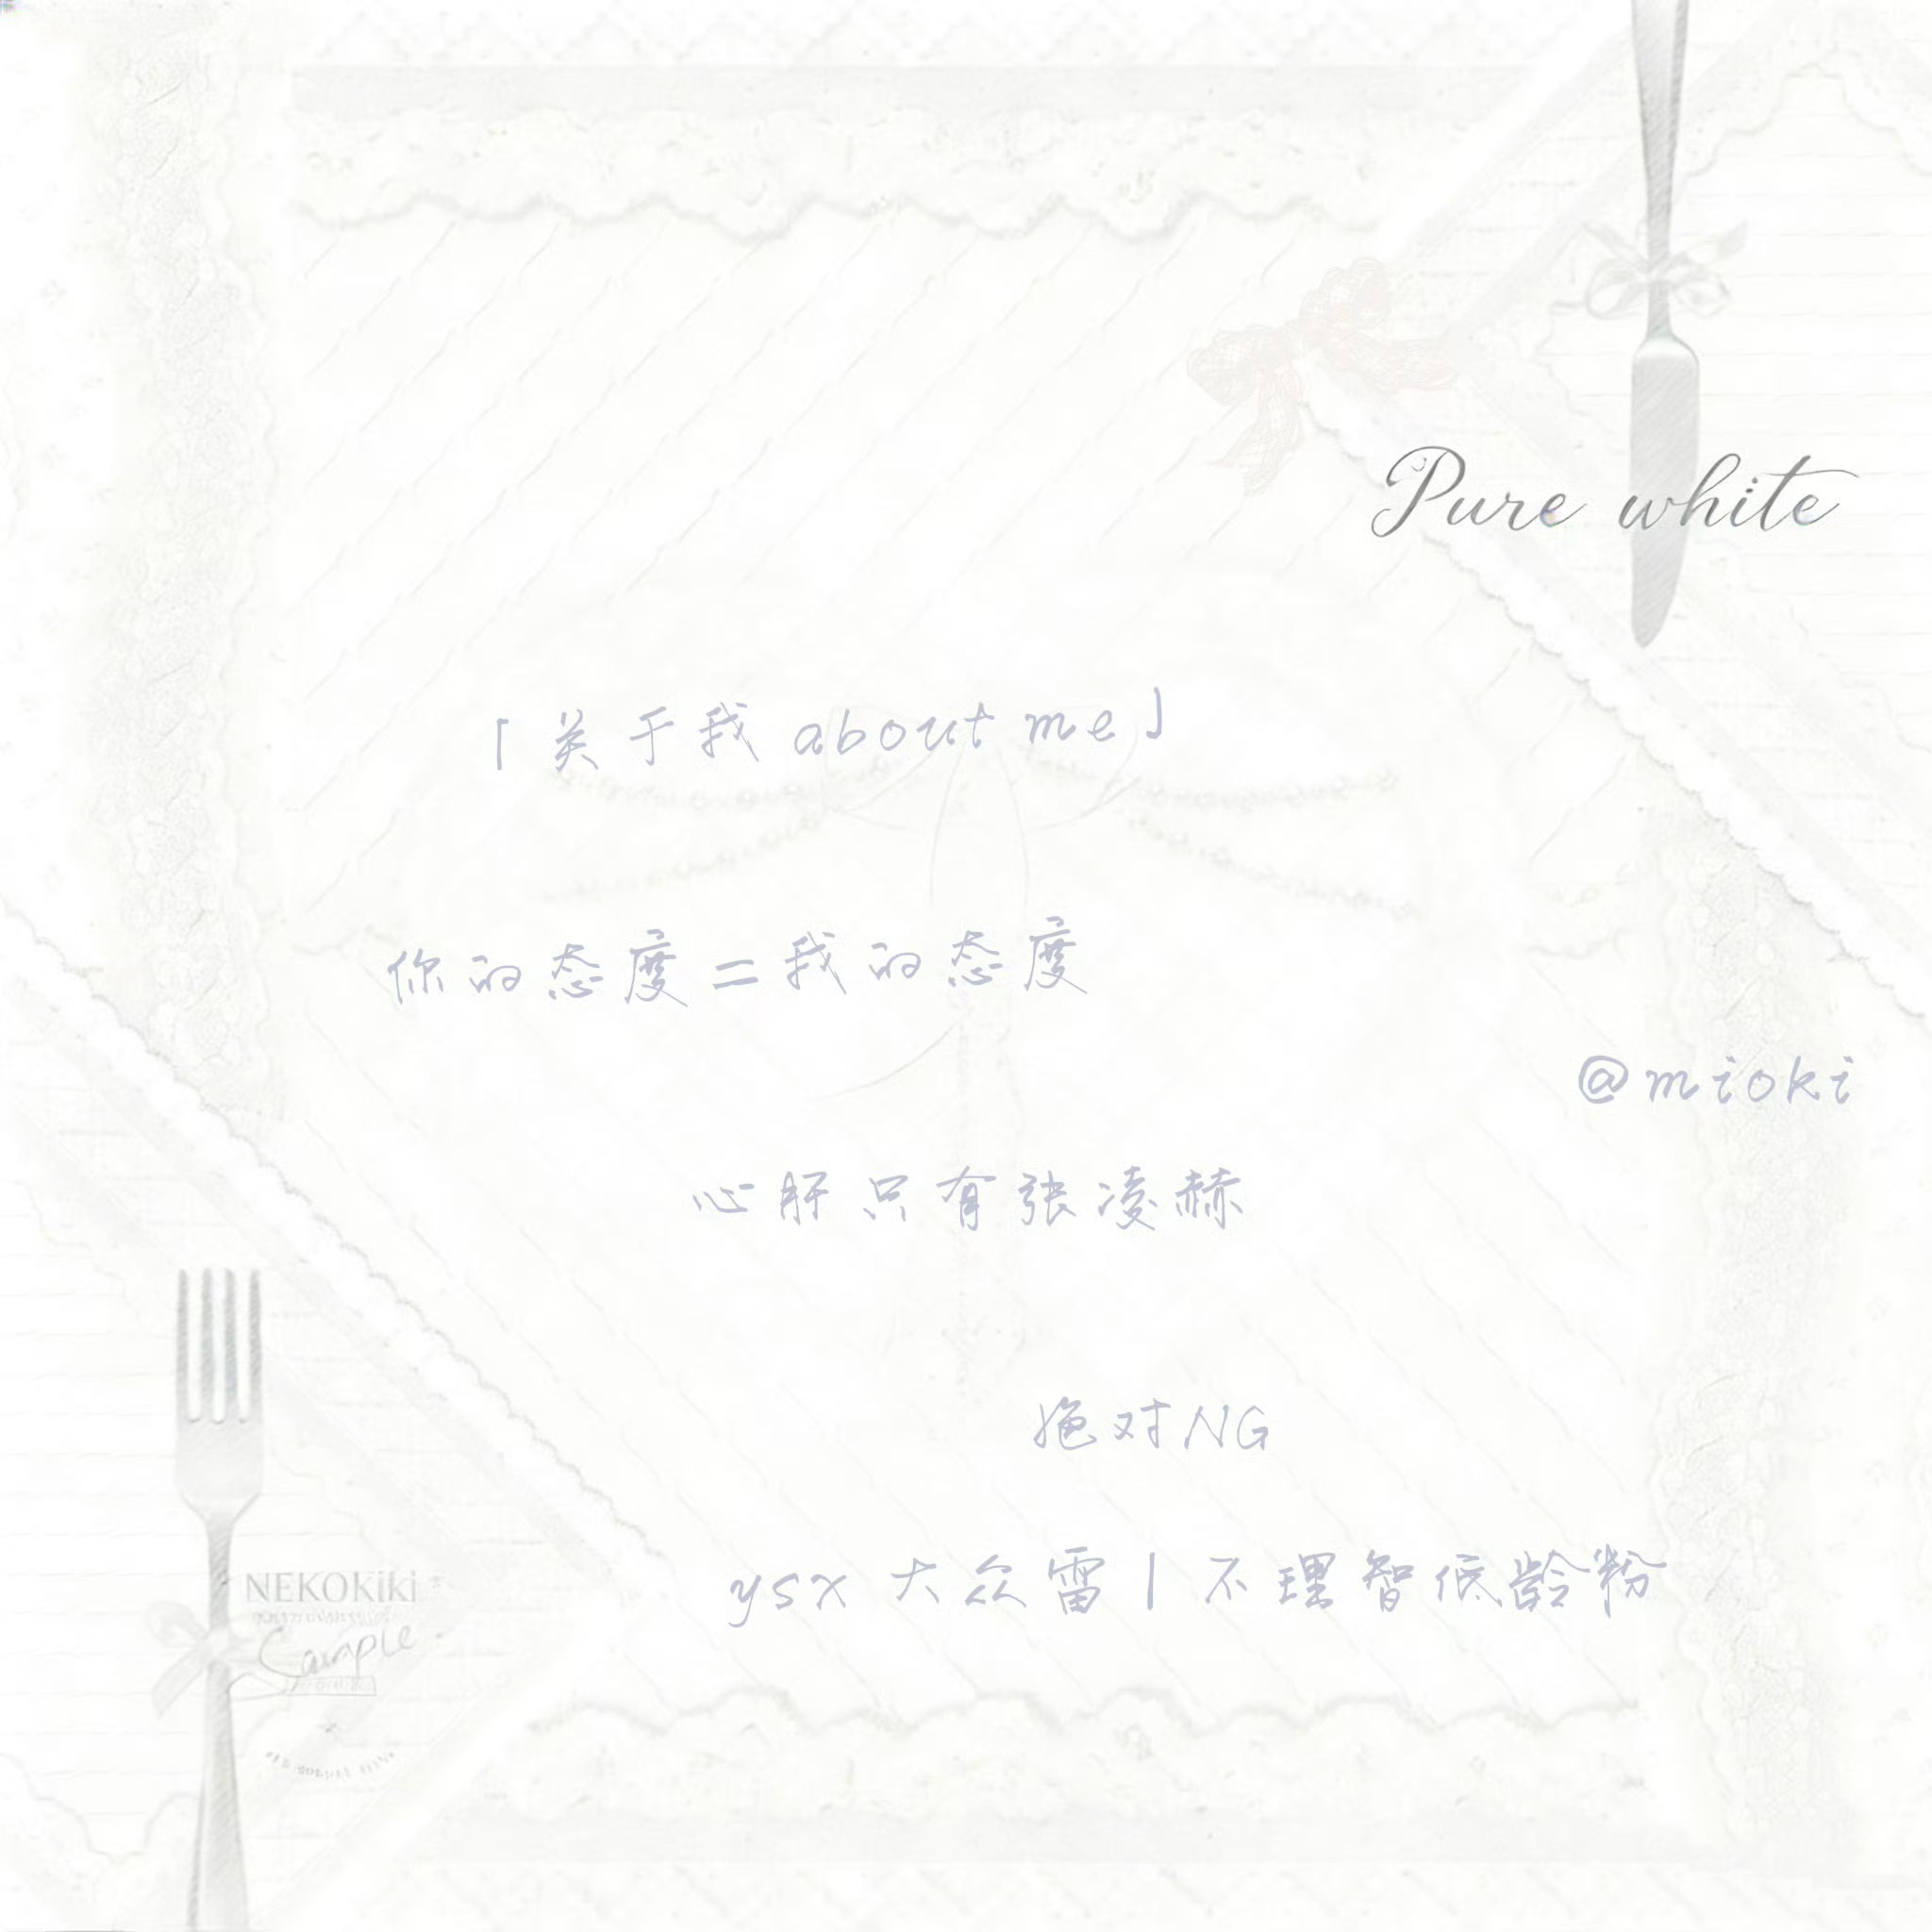 Pure white
「关于我 about me」
你的态度=我的态度
@mioki
心肝只有张凌赫
绝对NG
ysx 大众雷 | 不理智低龄粉
NEKOKiKi
Sample